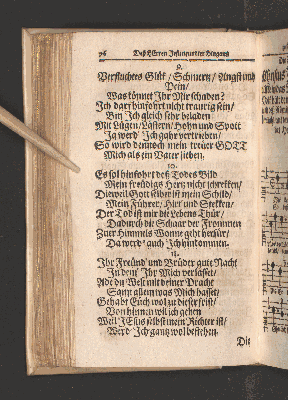 76 Deß HErren Jesu
9.
Verfluchtes Glük / Schmertz / Angst und
Pein /
Was könnet Ihr Mir schaden?
Ich darf hinfohrt nicht traurig sein /
Bin Ich gleich sehr beladen
Mit Lügen / Lästern / Hohn und Spott
Ja werd' Ich gahr vertrieben /
So wird dennoch mein treüer GOTT
Mich als ein Vater lieben.
10.
Es sol hinfohrt deß Todes Bild
Mein freüdigs Hertz nicht schrekken /
Dieweil Gott selber ist mein Schild /
Mein Führer / Hirt und Stekken /
Der Tod ist mir die Lebens Thür /
Dadurch die Schaar der Frommen
Zuer Himmels Wonne geht herfür /
Da werd' auch Ich hinkommen.
11.
Ihr Freünd' und Brüder gute Nacht
In dem' Ihr Mich verlasset /
Ade du Welt mit deiner Pracht
Samt allem was Mich hasset /
Gehabt Eüch wol zu dieser frist /
Von hinnen wil ich gehen
Weil JEsus selbst mein Richter ist /
Werd' Ich gantz wol bestehen.
Die